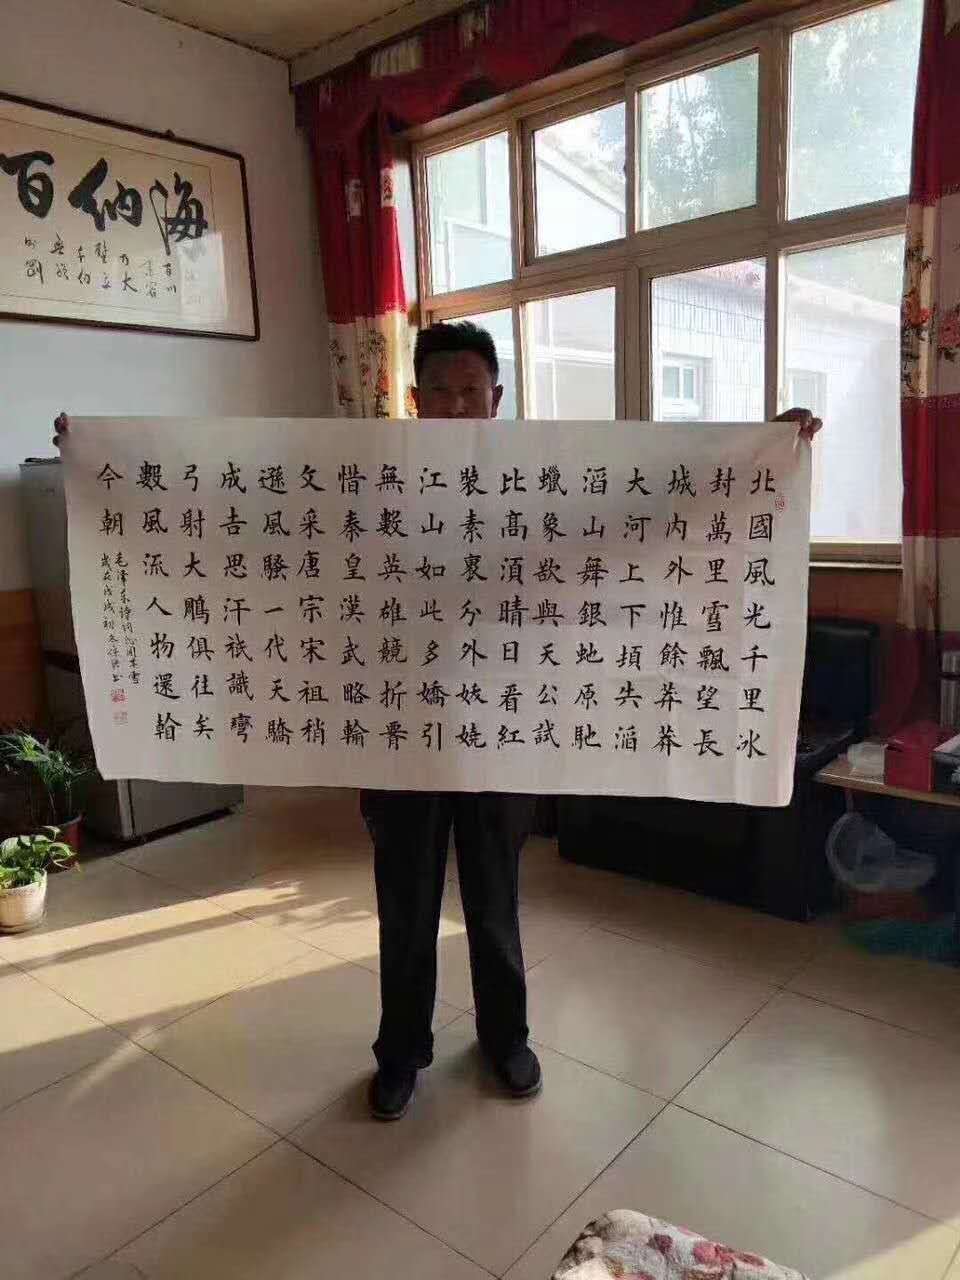 海纳百
百川
有容
乃大
壁立
千仞
無欲
則剛
北國風光千里冰
封萬里雪飄望長
城内外惟餘莽莽
大河上下頓失滔
滔山舞銀虵原馳
蠟象欲與天公試
比髙湏晴日看紅
裝素裹分外妖嬈
江山如此多嬌引
無數英雄競折腰
惜秦皇漢武略輸
文采唐宗宋祖稍
遜風騷一代天驕
成吉思汗衹識彎
弓射大鵰俱往矣
數風流人物還看
今朝
毛澤東詩詞沁園春雪
歲在戊戌初冬